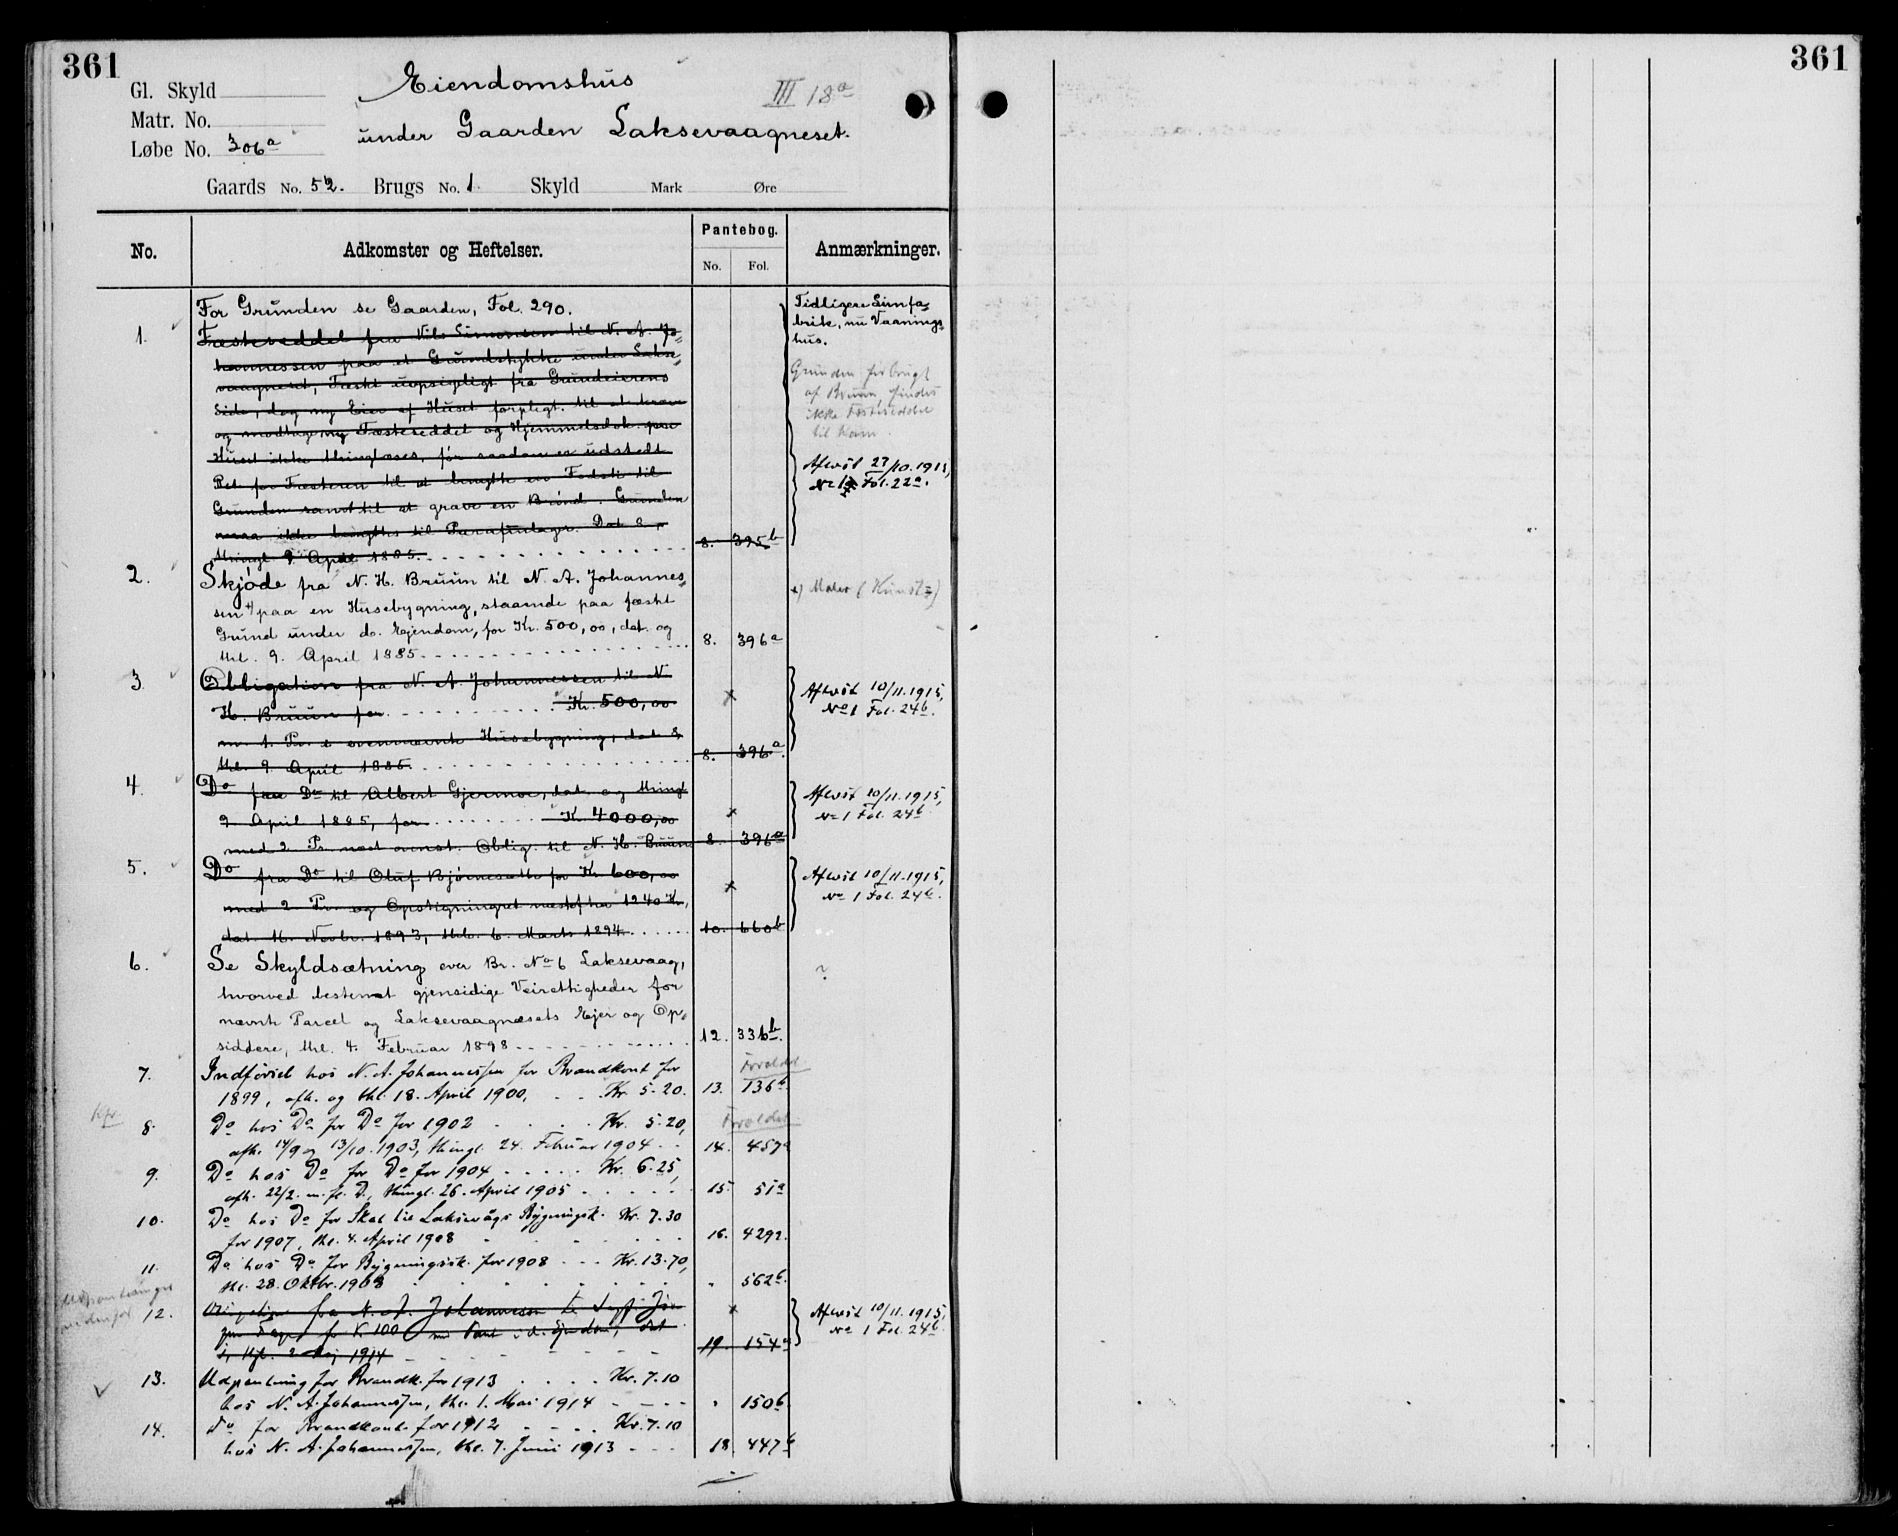 361
361
Gl. Skyld
Matr. No.
Løbe No. 306a
Eiendomshus
III 18a
under Gaarden Laksevaagneset.
Gaards No. 52. Brugs No. 1 Skyld Mark Øre
No. Adkomster og Heftelser. Pantebog. Anmærkninger.
No. Fol.
For Grunden se Gaarden, Fol. 290.
Tidligere Limfa=
brik, nu Vaanings=
hus.
1. Fæsteseddel fra Nils Simonsen til N. A. Jo=
hannessen paa et Grundstykke under Lakse=
vaagneset, Fæstet uopsigeligt fra Grundeierens
Side, dog ny Eier af Huset forpligt. til at kræve
og modtage ny Fæsteseddel og Hjemmelsdok.
Huset ikke thinglæses, før saadan er udstedt
Ret for Fæsteren til at benytte en Fodsti til
Grunden samt til at grave en Brønd. Grunden
maa ikke benyttes til Parafinlager. Dat. &
thingl. 9. April 1885. 8. 395b
Grunden forbrugt
af Bruun, findes
ikke Fæsteseddel
til ham.
Afløst 27/10.1915,
No 1 Fol. 22a.
2. Skjøde fra N. H. Bruun til N. A. Johannes=
sen x) paa en Husebygning, staaende paa fæstet
Grund under do. Ejendom, for Kr. 500,00, dat. og
thl. 9. April 1885 8. 396a
x) Maler (Kunst=)
3. Obligation fra N. A. Johannessen til N.
H. Bruun for Kr. 500,00
m. 1. Pr. i ovennævnte Husebygning, dat. &
thl. 9. April 1885. 8. 396a.
Afløst 10/11.1915,
No 1 Fol. 24b.
4. Do fra Do til Albert Gjermoe, dat. og thingl.
9. April 1885, for Kr. 4000,00
med 2. Pr. næst ovennt. Oblig. til N. H. Bruun 8. 396a
Afløst 10/11.1915,
No 1 Fol. 24b.
5. Do fra Do til Oluf Bjørnesæth for Kr. 600,00
med 2. Pr. og Opstigningsret næstefter 1240 Kr,
dat. 16. Novbr. 1893, thl. 6. Marts 1894. 10. 660b
Afløst 10/11.1915,
No 1 Fol. 24b.
6. Se Skyldsætning over Br. No 6 Laksevaag,
hvorved bestemt gjensidige Veirettigheder for
nævnte Parcel og Laksevaagnæsets Ejer og Op=
siddere, thl. 4. Februar 1898 12. 336b.
?
7. Indførsel hos N. A. Johannessen for Brandkont. for
1899, afh. og thl. 18. April 1900, Kr. 5.20. 13. 136b
Foreldet
8. Do hos Do for Do for 1902 Kr. 5.20,
afh. 14/9 og 13/10.1903, thingl. 24. Februar 1904 14. 457a
Foreldet
9. Do hos Do for Do for 1904 Kr. 6.25,
afh. 22/2. m. fl. D., thingl. 26. April 1905 15. 51a
10. Do hos Do for Skat til Laksevågs Bygningsk. Kr. 7.30
for 1907, thl. 4. April 1908 16. 429a.
11. Do hos Do for Bygningsk. for 1908 Kr. 13.70,
thl. 28. Oktbr. 1908 " 562b.
12. Obligation fra N. A. Johannessen til
for Kr 100 med Pant i d. Ejendom, dat.
thl. 2 Maj 1914 19. 154a
Afløst 10/11.1915,
No 1 Fol. 24b.
13. Udpantning for Brandk. for 1913 Kr. 7.10
hos N. A. Johannessen, thl. 1. Mai 1914 " 150b
14. Do for Brandkont. for 1912 Kr. 7.10
hos N. A. Johannessen, thl. 7. Juni 1913 18. 447b